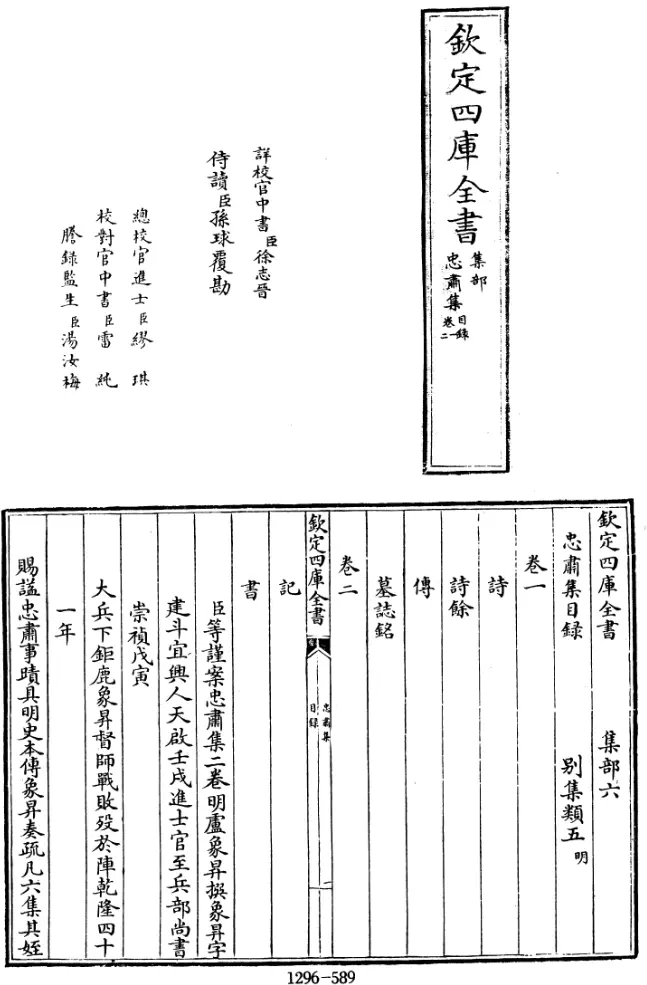 欽定四庫全書 集部
忠肅集 目錄
卷一
二
詳校官中書臣徐志晉
侍讀臣孫球覆勘
總校官進士臣繆琪
校對官中書臣雷純
謄錄監生臣湯汝梅
欽定四庫全書 集部六
忠肅集目錄 別集類五 明
卷一
詩
詩餘
傳
墓誌銘
卷二
欽定四庫全書
忠肅集
目錄
一
記
書
臣等謹案忠肅集二卷明盧象昇撰象昇字
建斗宜興人天啟壬戌進士官至兵部尚書
崇禎戊寅
大兵下鉅鹿象昇督師戰敗歿於陣乾隆四十
一年
賜諡忠肅事蹟具明史本傳象昇奏疏凡六集其姪
1296-589